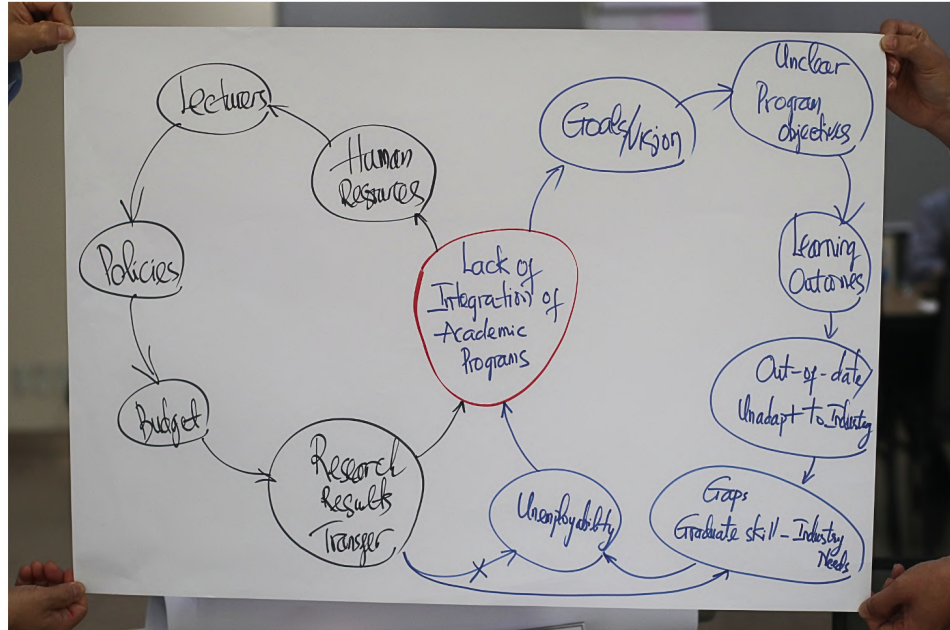 Lecturers
Human
Resources
Policies
Budget
Research
Results
Transfer
Lack of
Integration of
Academic
Programs
Goals/Vision
Unclear
Program
objectives
Learning
Outcomes
Out-of-date/
Unadapt to Industry
Gaps
Graduate skill - Industry
Needs
Unemployability
X